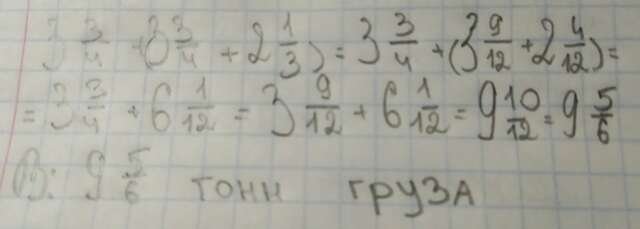 3 3/4 + (3 3/4 + 2 1/3) = 3 3/4 + (3 9/12 + 2 4/12) =
= 3 3/4 + 6 1/12 = 3 9/12 + 6 1/12 = 9 10/12 = 9 5/6
О: 9 5/6 тонн груза